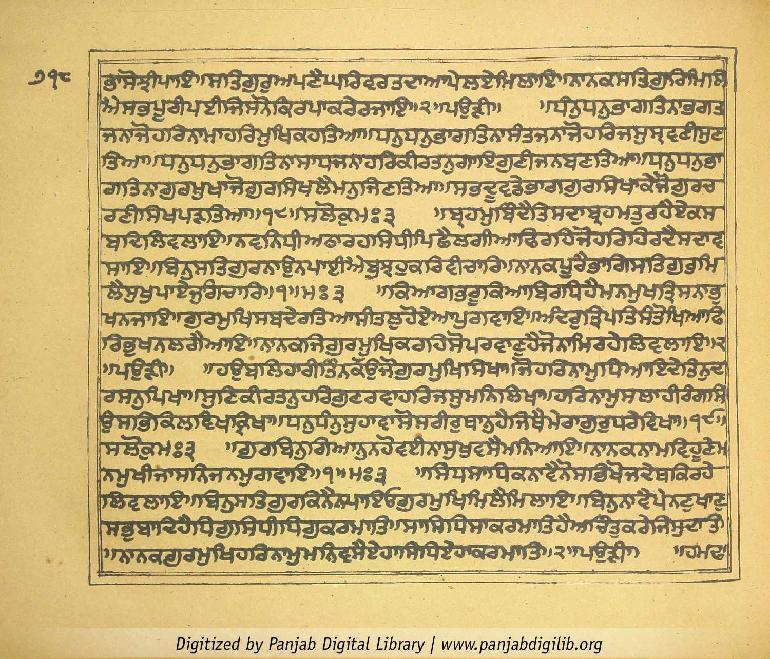 ਭਾਸੋਝੀਪਾਇ॥ਸਤਿਗੁਰੁਅਪਣੈਘਰਿਵਰਤਦਾਆਪੇਲਏਮਿਲਾਇ॥ਨਾਨਕਸਤਿਗੁਰਿਮਿਲਿ
੭੧੮
ਐਸਭਪੂਰੀਪਈਜਿਸਨੋਕਿਰਪਾਕਰੇਰਜਾਇ॥੨॥ਪਉੜੀ॥ ਧੰਨੁਧਨੁਭਾਗਤਿਨਾਭਗਤ
ਜਨਾਜੋਹਰਿਨਾਮਾਹਰਿਮੁਖਿਕਹਤਿਆ॥ਧਨੁਧਨੁਭਾਗਤਿਨਾਸੰਤਜਨਾਜੋਹਰਿਜਸੁਸ੍ਰਵਣੀਸੁਣ
ਤਿਆ॥ਧਨੁਧਨੁਭਾਗਤਿਨਾਸਾਧਜਨਾਹਰਿਕੀਰਤਨੁਗਾਇਗੁਣੀਜਨਬਣਤਿਆ॥ਧਨੁਧਨੁਭਾ
ਗਤਿਨਾਗੁਰਮੁਖਾਜੋਗੁਰਸਿਖਲੈਮਨੁਜਿਣਤਿਆ॥ਸਭਦੂਵਡੇਭਾਗਗੁਰਸਿਖਾਕੇਜੋਗੁਰਚ
ਰਣੀਸਿਖਪੜਤਿਆ॥੧੮॥ਸਲੋਕੁਮਃ੩ ॥ਬ੍ਰਹਮੁਬਿੰਦੈਤਿਸਦਾਬ੍ਰਹਮਤੁਰਹੈਏਕਸ
ਬਦਿਲਿਵਲਾਇ॥ਨਵਨਿਧੀਅਠਾਰਹਸਿਧੀਪਿਛੈਲਗੀਆਫਿਰਹਿਜੋਹਰਿਹਿਰਦੈਸਦਾਵ
ਸਾਇ॥ਬਿਨੁਸਤਿਗੁਰਨਾਉਨਪਾਈਐਬੁਝਹੁਕਰਿਵੀਚਾਰਿ॥ਨਾਨਕਪੂਰੈਭਾਗਿਸਤਿਗੁਰੁਮਿ
ਲੈਸੁਖੁਪਾਏਜੁਗਿਚਾਰਿ॥੧॥ਮਃ੩ ॥ਕਿਆਗਭਰੂਕਿਆਬਿਰਧਿਹੈਮਨਮੁਖਤ੍ਰਿਸਨਾਭੁ
ਖਨਜਾਇ॥ਗੁਰਮੁਖਿਸਬਦੇਰਤਿਆਸੀਤਲੁਹੋਏਆਪੁਗਵਾਇ॥ਅੰਦਰੁਤ੍ਰਿਪਤਿਸੰਤੋਖਿਆਫਿ
ਰਿਭੁਖਨਲਗੈਆਇ॥ਨਾਨਕਜਿਗੁਰਮੁਖਿਕਰਹਿਸੋਪਰਵਾਣੁਹੈਜੋਨਾਮਿਰਹੇਲਿਵਲਾਇ॥੨
॥ਪਉੜੀ॥ ॥ਹਉਬਲਿਹਾਰੀਤਿੰਨਕੰਉਜੋਗੁਰਮੁਖਿਸਿਖਾ॥ਜੋਹਰਿਨਾਮੁਧਿਆਇਦੇਤਿਨਦ
ਰਸਨੁਪਿਖਾ॥ਸੁਣਿਕੀਰਤਨੁਹਰਿਗੁਣਰਵਾਹਰਿਜਸੁਮਨਿਲਿਖਾ॥ਹਰਿਨਾਮੁਸਲਾਹੀਰੰਗਸਿ
ਉਸਭਿਕਿਲਵਿਖਕ੍ਰਿਖਾ॥ਧਨੁਧੰਨੁਸੁਹਾਵਾਸੋਸਰੀਰੁਥਾਨੁਹੈਜਿਥੈਮੇਰਾਗੁਰੁਧਰੇਵਿਖਾ॥੧੯॥
ਸਲੋਕੁਮਃ੩ ॥ਗੁਰਬਿਨੁਗਿਆਨੁਨਹੋਵਈਨਾਸੁਖੁਵਸੈਮਨਿਆਇ॥ਨਾਨਕਨਾਮਵਿਹੂਣੇਮ
ਨਮੁਖੀਜਾਸਨਿਜਨਮੁਗਵਾਇ॥੧॥ਮਃ੩ ॥ਸਿਧਸਾਧਿਕਨਾਵੈਨੋਸਭਿਖੋਜਦੇਥਕਿਰਹੇ
ਲਿਵਲਾਇ॥ਬਿਨੁਸਤਿਗੁਰਕਿਨੈਨਪਾਇਓਗੁਰਮੁਖਿਮਿਲੈਮਿਲਾਇ॥ਬਿਨੁਨਾਵੈਪੈਨਣੁਖਾਣੁ
ਸਭੁਬਾਦਿਹੈਧਿਗੁਸਿਧੀਧਿਗੁਕਰਮਾਤਿ॥ਸਾਸਿਧਿਸਾਕਰਮਾਤਿਹੈਅਚਿੰਤੁਕਰੇਜਿਸੁਦਾਤਿ
॥ਨਾਨਕਗੁਰਮੁਖਿਹਰਿਨਾਮੁਮਨਿਵਸੈਏਹਾਸਿਧਿਏਹਾਕਰਮਾਤਿ॥੨॥ਪਉੜੀ॥ ॥ਹਮਢਾ
Digitized by Panjab Digital Library | www.panjabdigilib.org